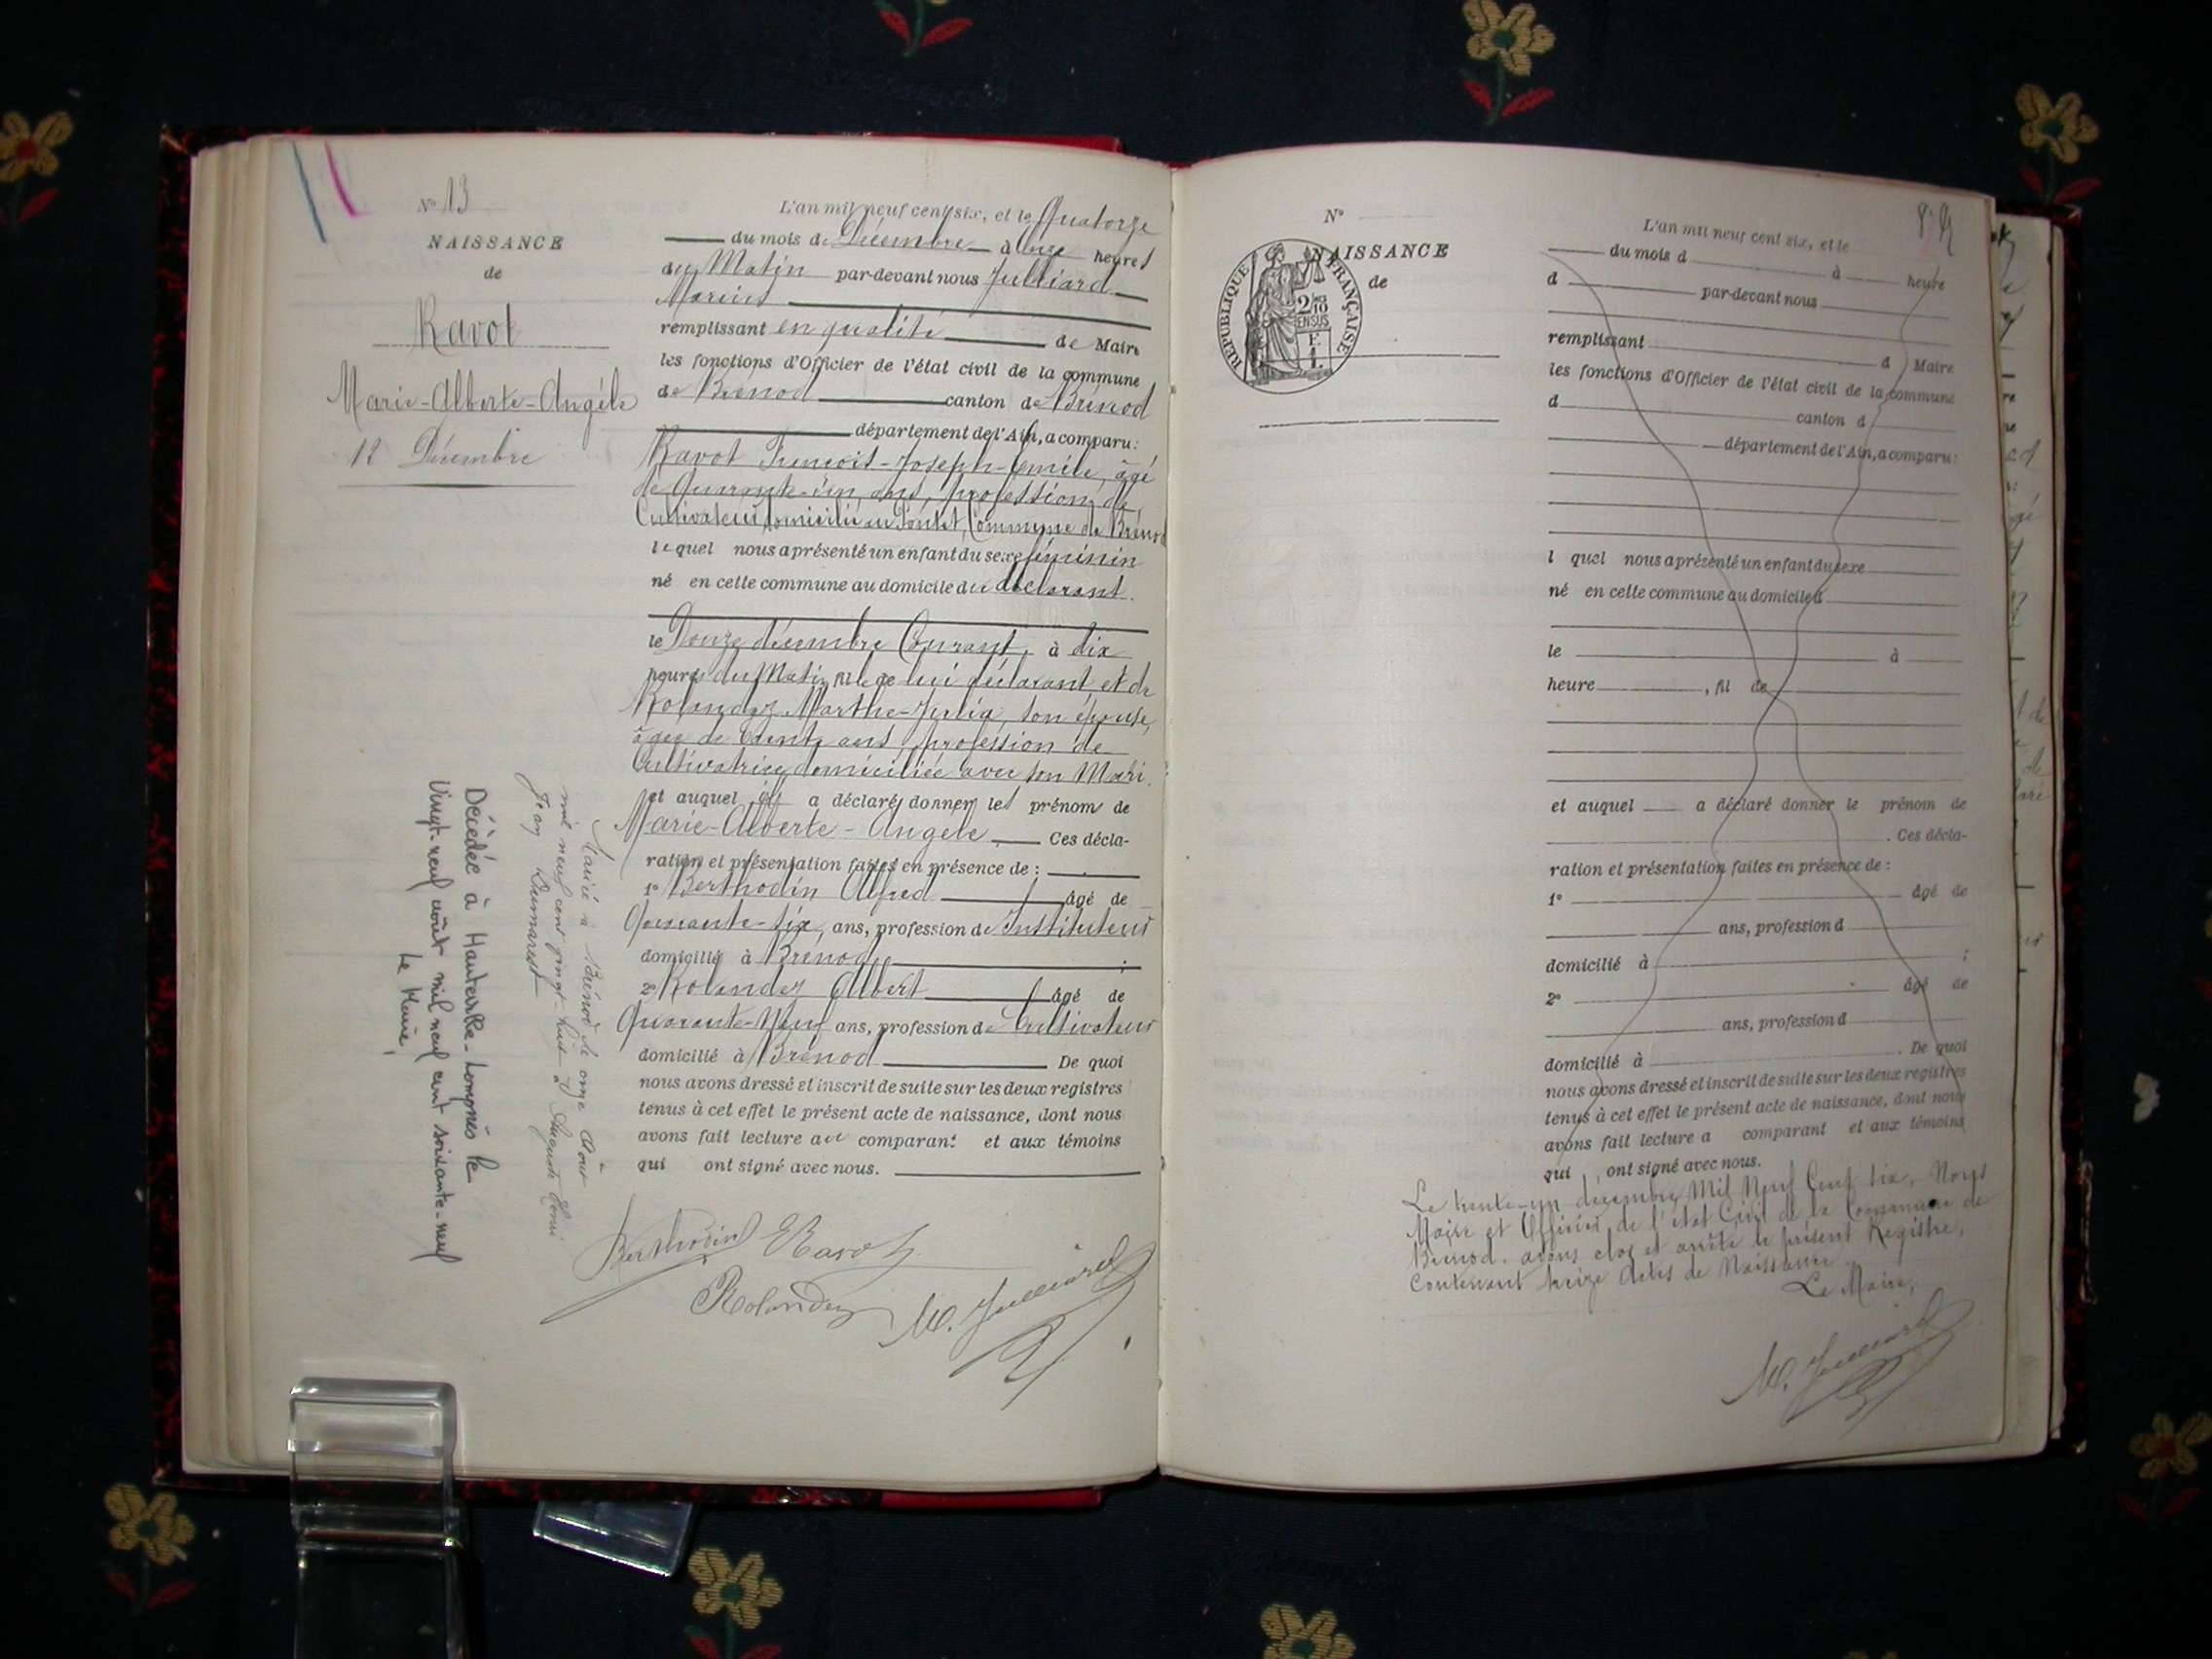 N° 13
NAISSANCE
de
Ravot
Marie-Alberte-Angèle
12 Décembre
L'an mil neuf cent six, et le Quatorze
du mois de Décembre à Onze heures
du Matin par-devant nous Julliard
Marius
remplissant en qualité de Maire
les fonctions d'Officier de l'état civil de la commune
de Brénod canton de Brénod
département de l'Ain, a comparu :
Ravot François-Joseph-Emile, âgé
de Quarante-un ans, profession de
Cultivateur, domicilié au Pontet, Commune de Brénod
lequel nous a présenté un enfant du sexe féminin
né en cette commune au domicile du déclarant.
le Douze décembre Courant, à dix
heures du Matin, fille de lui déclarant, et de
Rolandez Marthe-Julia, son épouse,
âgée de trente ans, profession de
Cultivatrice, domiciliée avec son Mari.
et auquel il a déclaré donner les prénoms de
Marie-Alberte-Angèle. Ces décla-
ration et présentation faites en présence de :
1° Berthodin Alfred âgé de
Quarante-six, ans, profession de Instituteur
domicilié à Brénod ;
2° Rolandez Albert âgé de
Quarante-Neuf ans, profession de Cultivateur
domicilié à Brénod De quoi
nous avons dressé et inscrit de suite sur les deux registres
tenus à cet effet le présent acte de naissance, dont nous
avons fait lecture au comparant et aux témoins
qui ont signé avec nous.
Mariée à Brénod le onze Août
mil neuf cent vingt-huit à Auguste Henri
Jean Dumarest
Décédée à Hauteville-Lompnès le
Vingt-neuf août mil neuf cent soixante-neuf
Le Maire,
Berthodin E Ravot
Rolandez M. Julliard
N°
NAISSANCE
de
REPUBLIQUE FRANÇAISE
2/10
EN SUS
L'an mil neuf cent six, et le
du mois d à heure
d par-devant nous
remplissant d Maire
les fonctions d'Officier de l'état civil de la commune
d canton d
département de l'Ain, a comparu :
l quel nous a présenté un enfant du sexe
né en cette commune au domicile d
le à
heure , fil de
et auquel a déclaré donner le prénom de
. Ces décla-
ration et présentation faites en présence de :
1° âgé de
ans, profession d
domicilié à ;
2° âgé de
ans, profession d
domicilié à . De quoi
nous avons dressé et inscrit de suite sur les deux registres
tenus à cet effet le présent acte de naissance, dont nous
avons fait lecture a comparant et aux témoins
qui ont signé avec nous.
Le trente-un décembre Mil Neuf Cent six, Nous
Maire et Officier de l'état Civil de la Commune de
Brénod. avons clos et arrêté le présent Registre,
Contenant treize Actes de Naissance.
Le Maire,
M. Julliard